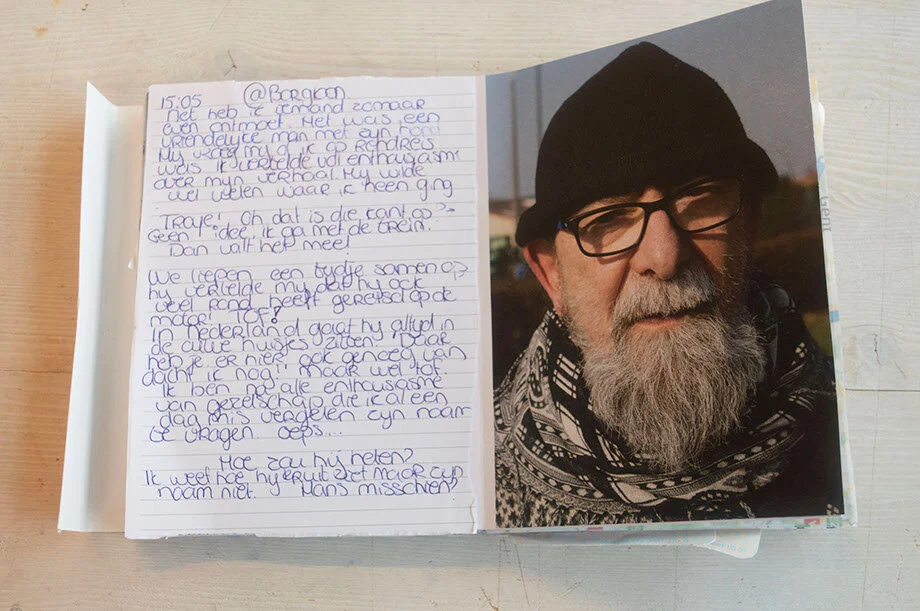 15:05 @Borgloon
Net heb ik iemand zomaar
even ontmoet. Het was een
vriendelijke man met zijn hond
Hij vroeg mij of ik op rondreis
was ik vertelde vol enthousiasme
over mijn verhaal. Hij wilde
wel weten waar ik heen ging
Traje! Oh dat is die kant op?
Geen idee, ik ga met de trein.
Dan valt het mee!
We liepen een tydje samen op
hy vertelde my dat hy ook
veel rond heeft gereisd op de
motor! Tof!
In Nederland gaat hy altyd in
die auwe huisjes zitten. Daar
heb je er hier ook genoeg van
dacht ik nog! Maar wel tof.
Ik ben na alle enthousiasme
van gezelschap die ik al een
dag mis vergeten zyn naam
te vragen. oeps...
Hoe zou hij heten?
Ik weet hoe hy eruit ziet maar zyn
naam niet. Hans misschien?
Gent